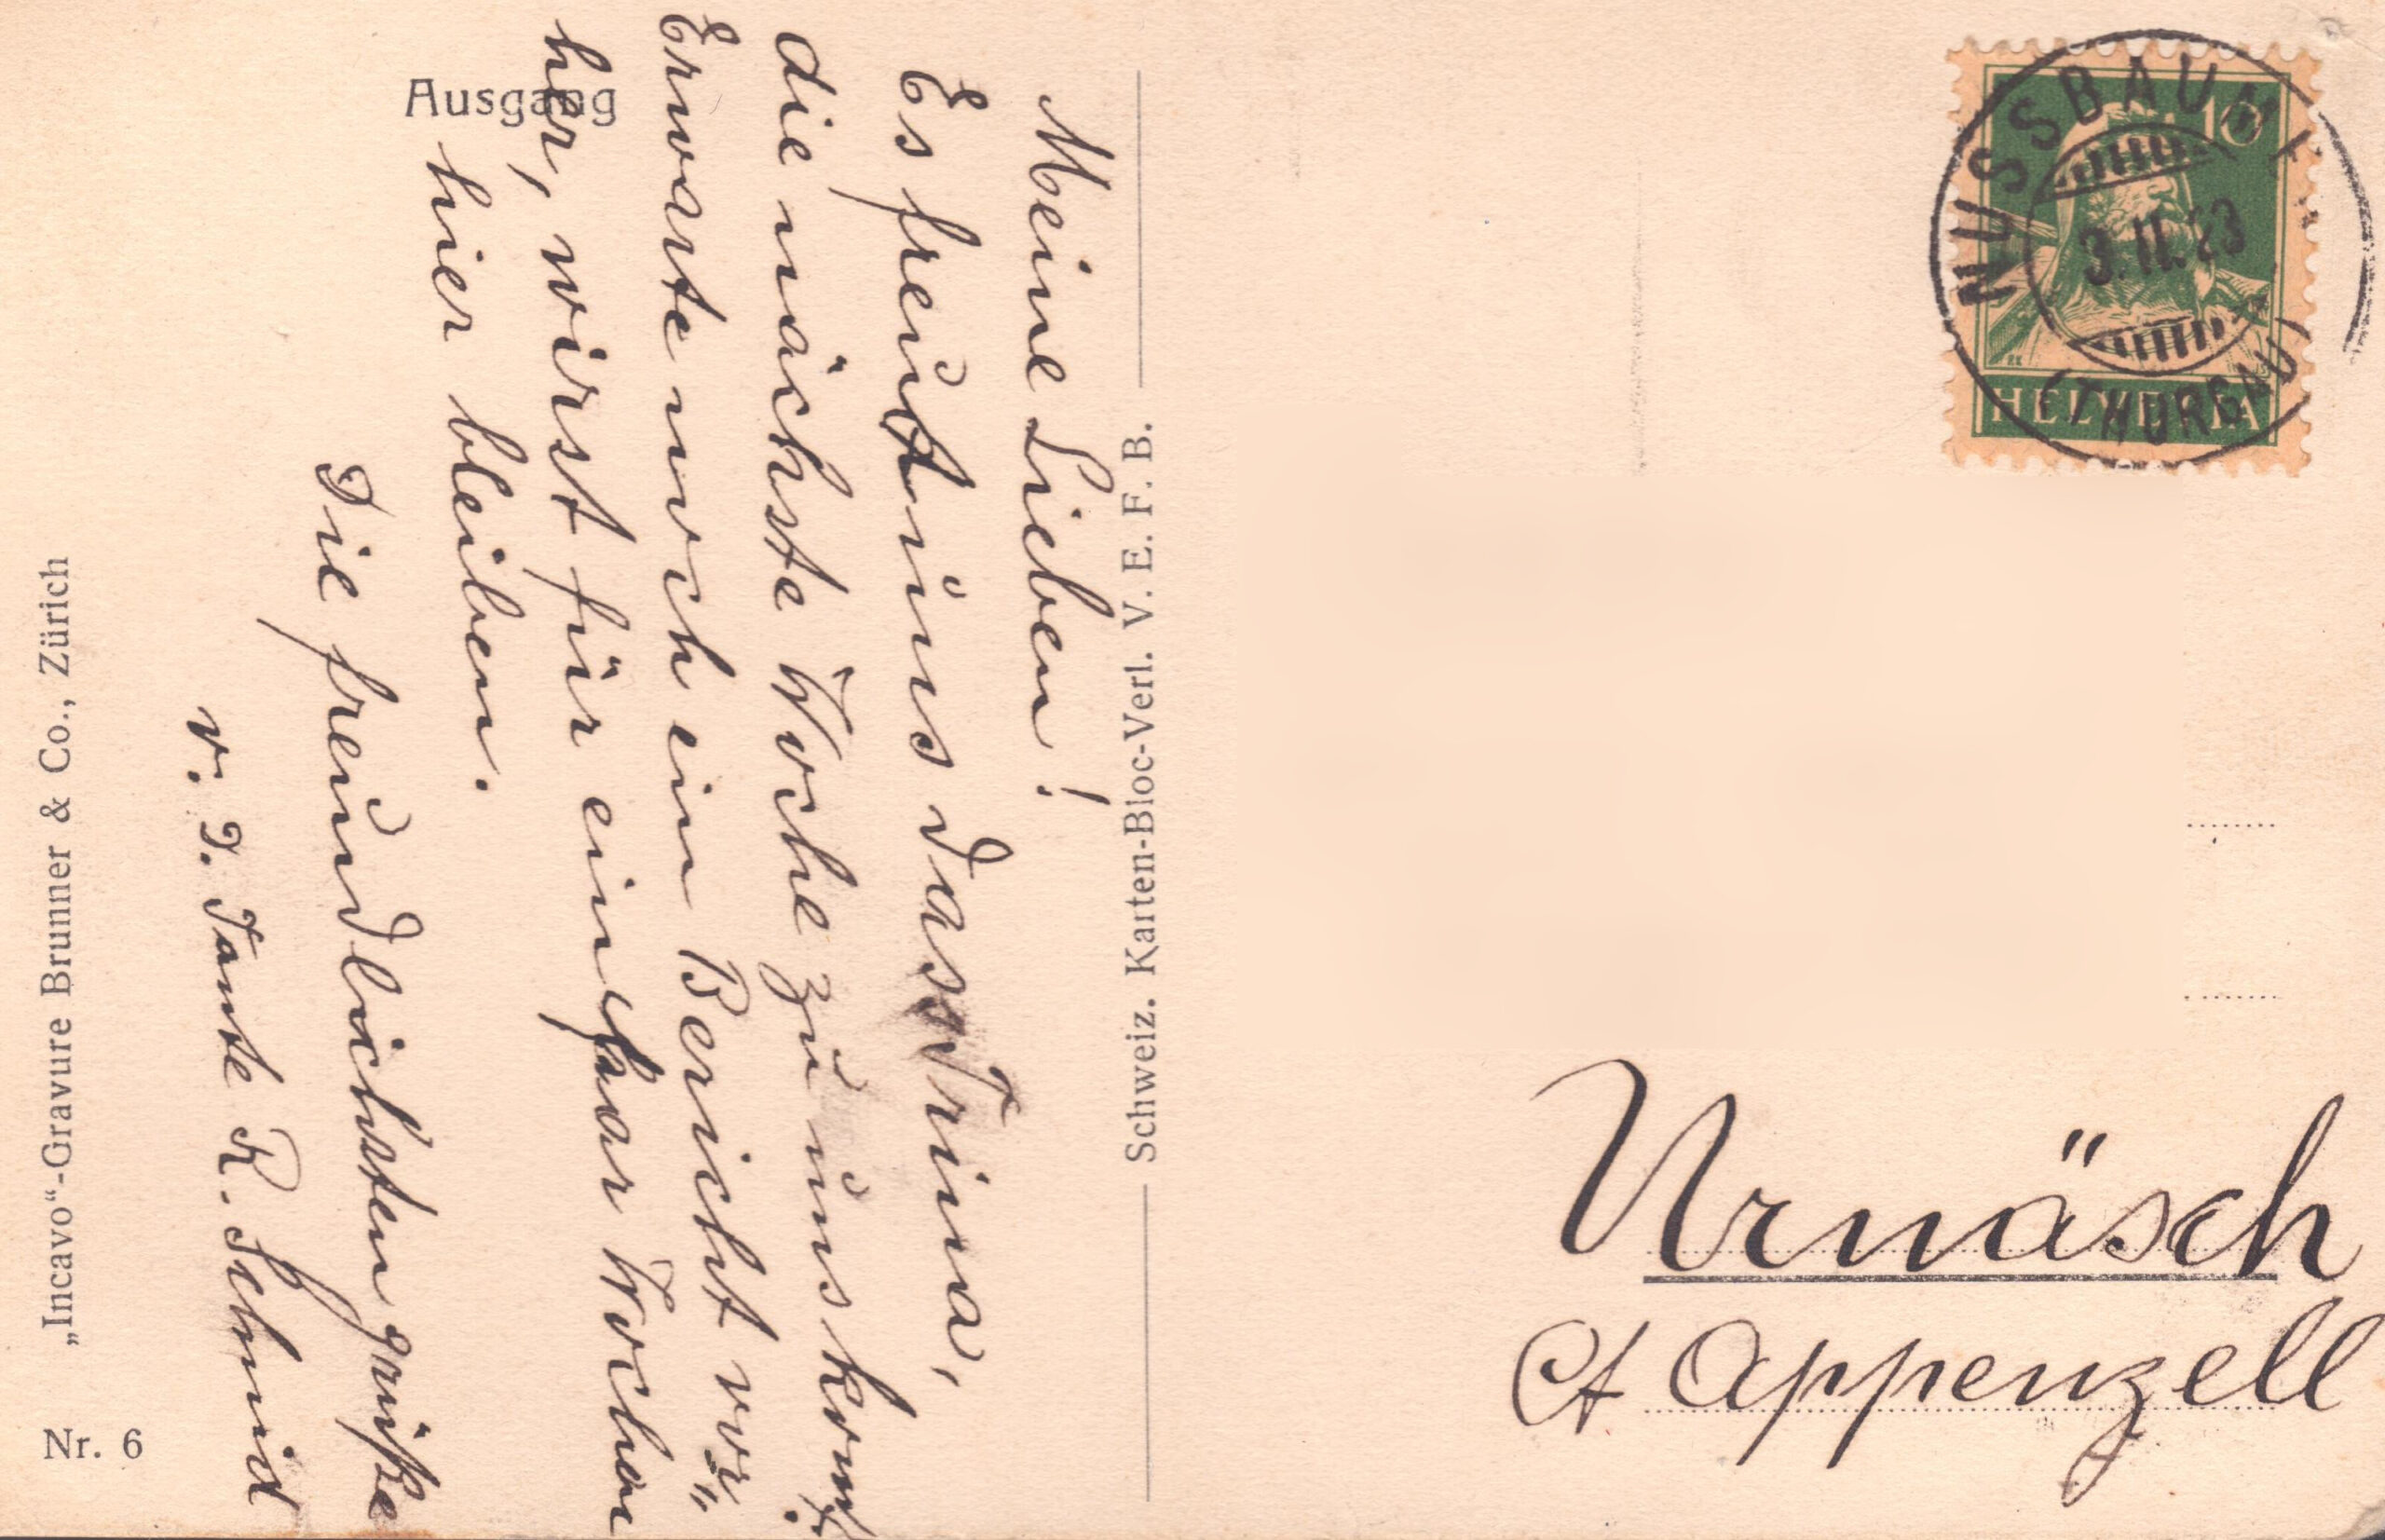 Ausgang
Meine Lieben!
Es freut uns dass Trina,
die nächste Woche zu uns kommt.
Erwarte noch ein Bericht vor„
her, wirst für ein paar Wochen
hier bleiben.
Die freundlichsten grüsse
v. T. Tante R. Schmid
„Incavo“-Gravure Brunner & Co., Zürich
Nr. 6
Schweiz. Karten-Bloc-Verl. V. E. F. B.
10
HELVETIA
NUSSBAUMEN
3.II.23
(THURGAU)
Urnäsch
Ct Appenzell